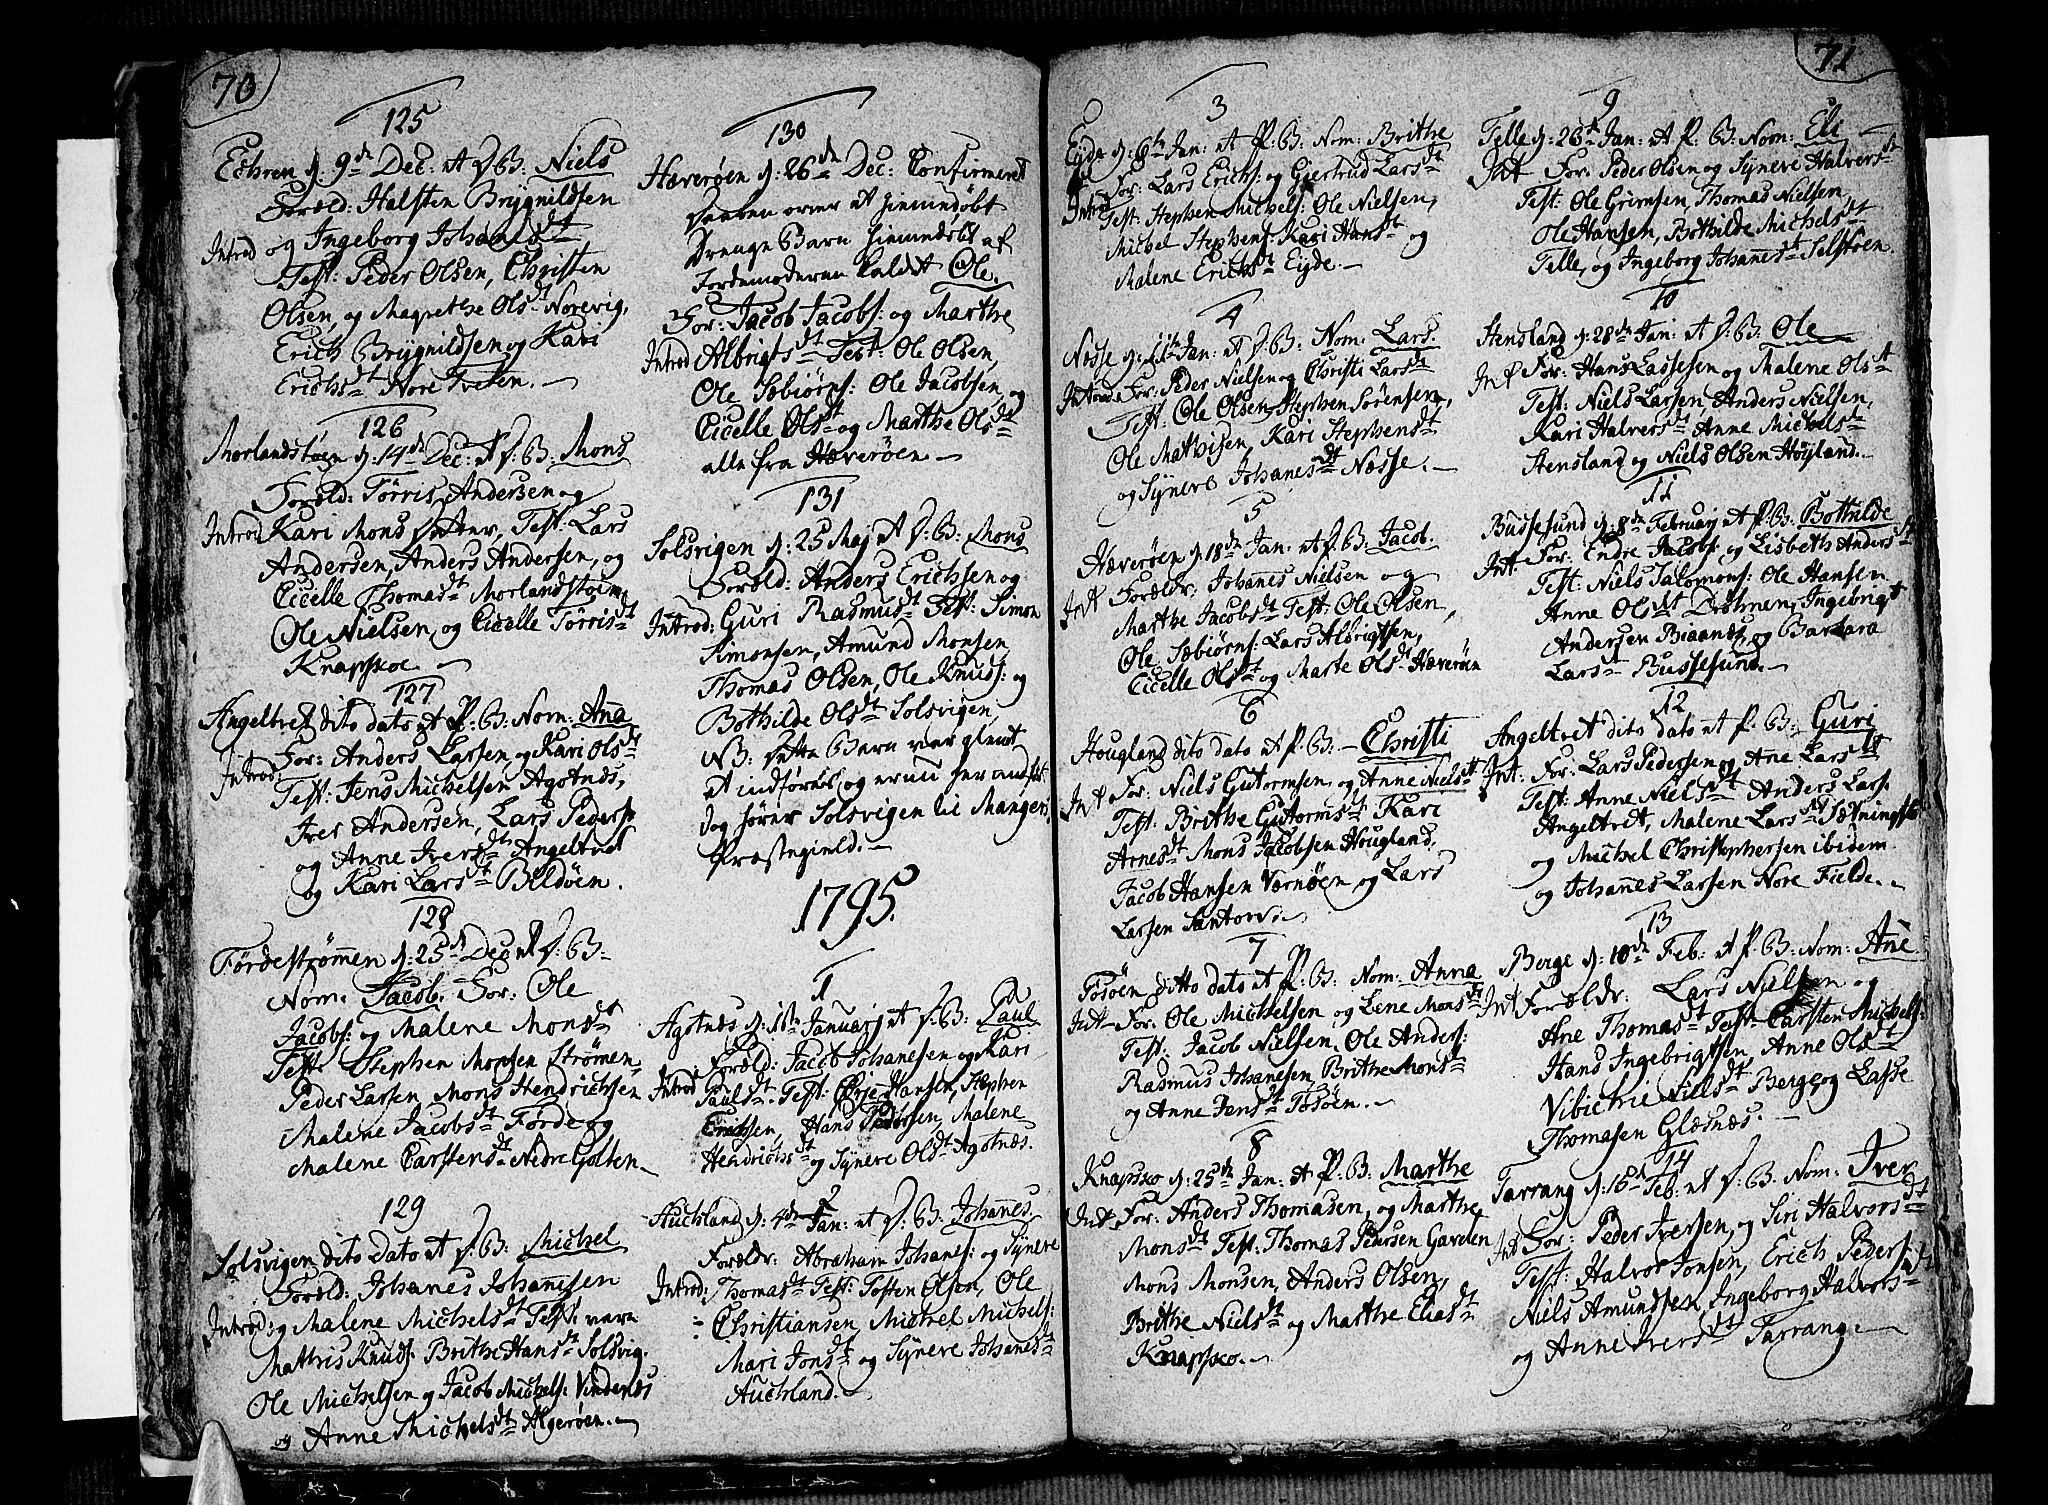 70
125
Echren d: 9de Dec: et P: B: Niels
Foræld: Halsten Brÿgnildsen
Introd og Ingeborg Johanesdt
Test: Peder Olsen, Christen
Olsen, og Magrethe Olsdt Norevig,
Erich Brÿgnildsen og Kari
Erichsdt Nore Tveten.
126
Morlandstøen d: 14de Dec: et P: B: Mons
Foræld: Tørris Andersen og
Introd Kari Mons Datter, Test: Lars
Andersen, Anders Andersen, og
Cicelle Thomasdt Morlandstøen,
Ole Nielsen, og Cicelle Tørrisdt
Knapskoe
127
Angeltvet dito dato et P: B: Nom: Ana
For: Anders Larsen, og Kari Olsdt
Introd: Test: Jens Michelsen Agotnæs,
Iver Andersen, Lars Peders:
og Anne Iversdt Angeltvet
og Kari Larsdt Bildøen.
128
Førdestrømmen d: 25de Dec et P: B:
Nom: Jacob. For: Ole
Jacobs: og Malene Monsdt
Test: Stephen Monsen Strømen,
Peder Larsen, Mons Hendrichsen
Malene Jacobsdt Førde og
Malene Carstensdt Nedre Golten
129
Solsvigen dito dato et P: B: Michel
Foræld: Johanes Johannesen
Introd: og Malene Michelsdt Test: vare
Mathis Knuds: Brithe Hansdt Solsvig.
Ole Michelsen og Jacob Michels: Vindenæs
og Anne Michelsdt Algerøen.
130
Hæverøen d: 26de Dec: Confirmeret
Daaben over et hiemedøbt
Drenge Barn hiemedøbt af
Jordemoderen kaldet Ole.
For: Jacob Jacobs: og Marthe
Introd Albrigtsdt Test: Ole Olsen,
Ole Sæbiørns: Ole Jacobsen, og
Cicelle Olsdt og Marthe Olsdt
alle fra Hæverøen
131
Solsvigen d: 25 Maj et P: B: Mons
Foræld: Anders Erichsen og
Introd: Guri Rasmusdt Test: Simon
Simonsen, Amund Monsen,
Thomas Olsen, Ole Knuds: og
Bothilde Olsdt Solsvigen,
NB: Dette Barn var glemt
at indføres, og er nu her anført
dog hører Solsvigen til Mangers
Præstegield.
1795.
1
Agotnæs d: 1ste Januarj et P: B: Paul
Foræld: Jacob Johanesen og Kari
Introd Paulsdt. Test: Ørje Hansen, Stephen
Erichsen, Hans Pedersen, Malene
Hendrichsdt og Sÿnere Olsdt Agotnæs.
2
Auchland d: 4de Jan: et P: B: Johanes.
Forældr: Abraham Johanes: og Sÿnere
Introd: Thomasdt Test: Tosten Olsen, Ole
Christiansen, Michel Michels:
Mari Jonsdt og Sÿnere Johanesdt
Auchland.
71
3
Eÿde d: 6te Jan: et P: B: Nom: Brithe
For: Lars Erichs: og Giertrud Larsdt
Introd Test: Stephen Michels: Ole Nielsen,
Michel Stephens: Kari Hansdt og
Malene Erichsdt Eÿde.
4
Næsse d: Jan: et P: B: Nom: Lars.
Introd For: Peder Nielsen og Christi Larsdt
Test: Ole Olsen, Stephen Sørensen,
Ole Mathisen, Kari Stephensdt
og Sÿnere Johanesdt Næsse.
5
Hæverøen d: 18de Jan: et P: B: Jacob.
Int Forældr: Johanes Nielsen og
Marthe Jacobsdt Test: Ole Olsen,
Ole Sæbiørns: Lars Albrigtsen,
Cicelle Olsdt og Marte Olsdt Hæverøen
6
Hougland dito dato et P: B: Christi
Int For: Niels Gutormsen, og Anne Nielsdt
Test: Brithe Gutormsdt Kari
Arnesdt Mons Jacobsen Hougland,
Jacob Hansen Værnøen og Lars
Larsen Santorv.
7
Tosøen ditto dato et P: B: Nom: Anna
Int For: Ole Michelsen og Lene Monsdt
Test: Jacob Nielsen, Ole Anders:
Rasmus Johanesen, Brithe Monsdt
og Anne Jensdt Tosøen.
8
Knapsko d: 25de Jan: et P: B: Marthe
Int For: Anders Thomasen, og Marthe
Monsdt Test: Thomas Pedersen Gavelen
Mons Monsen, Anders Olsen,
Brithe Nielsdt og Marthe Eliasdt
Knapsko.
9
Telle d: 26de Jan: et P: B: Nom: Eli
Int For: Peder Olsen og Sÿnere Halversdt
Test: Ole Grimsen, Thomas Nielsen,
Ole Hansen, Bothilde Michelsdt
Telle, og Ingeborg Johanesdt Selstøen.
10
Stensland d: 28de Jan: et P: B: Ole
Int For: Hans Lassesen og Malene Olsdt
Test: Niels Larsen, Anders Nielsen,
Kari Halversdt Anne Michelsdt
Stensland og Niels Olsen Høÿland.
11
Bussesund d: 8de Februarj et P: B: Bothilde
Int For: Endre Jacobs: og Lisbeth Andersdt
Test: Niels Salomons: Ole Hansen
Anne Olsdt Drotnen, Ingebrigt
Andersen Biaanæs, og Barbara
Larsdt Bussesund.
12
Angeltvet dito dato et P: B: Guri
Int: For: Lars Pedersen og Ane Larsdt
Test: Anne Nielsdt Anders Lars:
Angeltvet, Malene Larsdt
og Michel Christophersen ibidem
og Johannes Larsen Nore Fielde.
13
Berge d: 10de Feb: et P: B: Nom: Ane
Int Forældr: Lars Nielsen og
Ane Thomasdt Test: Carsten Michels:
Hans Ingebrigtsen, Anne Olsdt
Vibictrie Nielsdt Berge og Lasse
Thomasen Glæsnæs.
14
Tarrang d: 16de Feb: et P: B: Nom: Iver
Int For: Peder Iversen, og Siri Halvorsdt
Test: Halvor Jonsen, Erich Peders:
Niels Amundsen, Ingeborg Halvorsdt
og Anne Iversdt Tarrang.